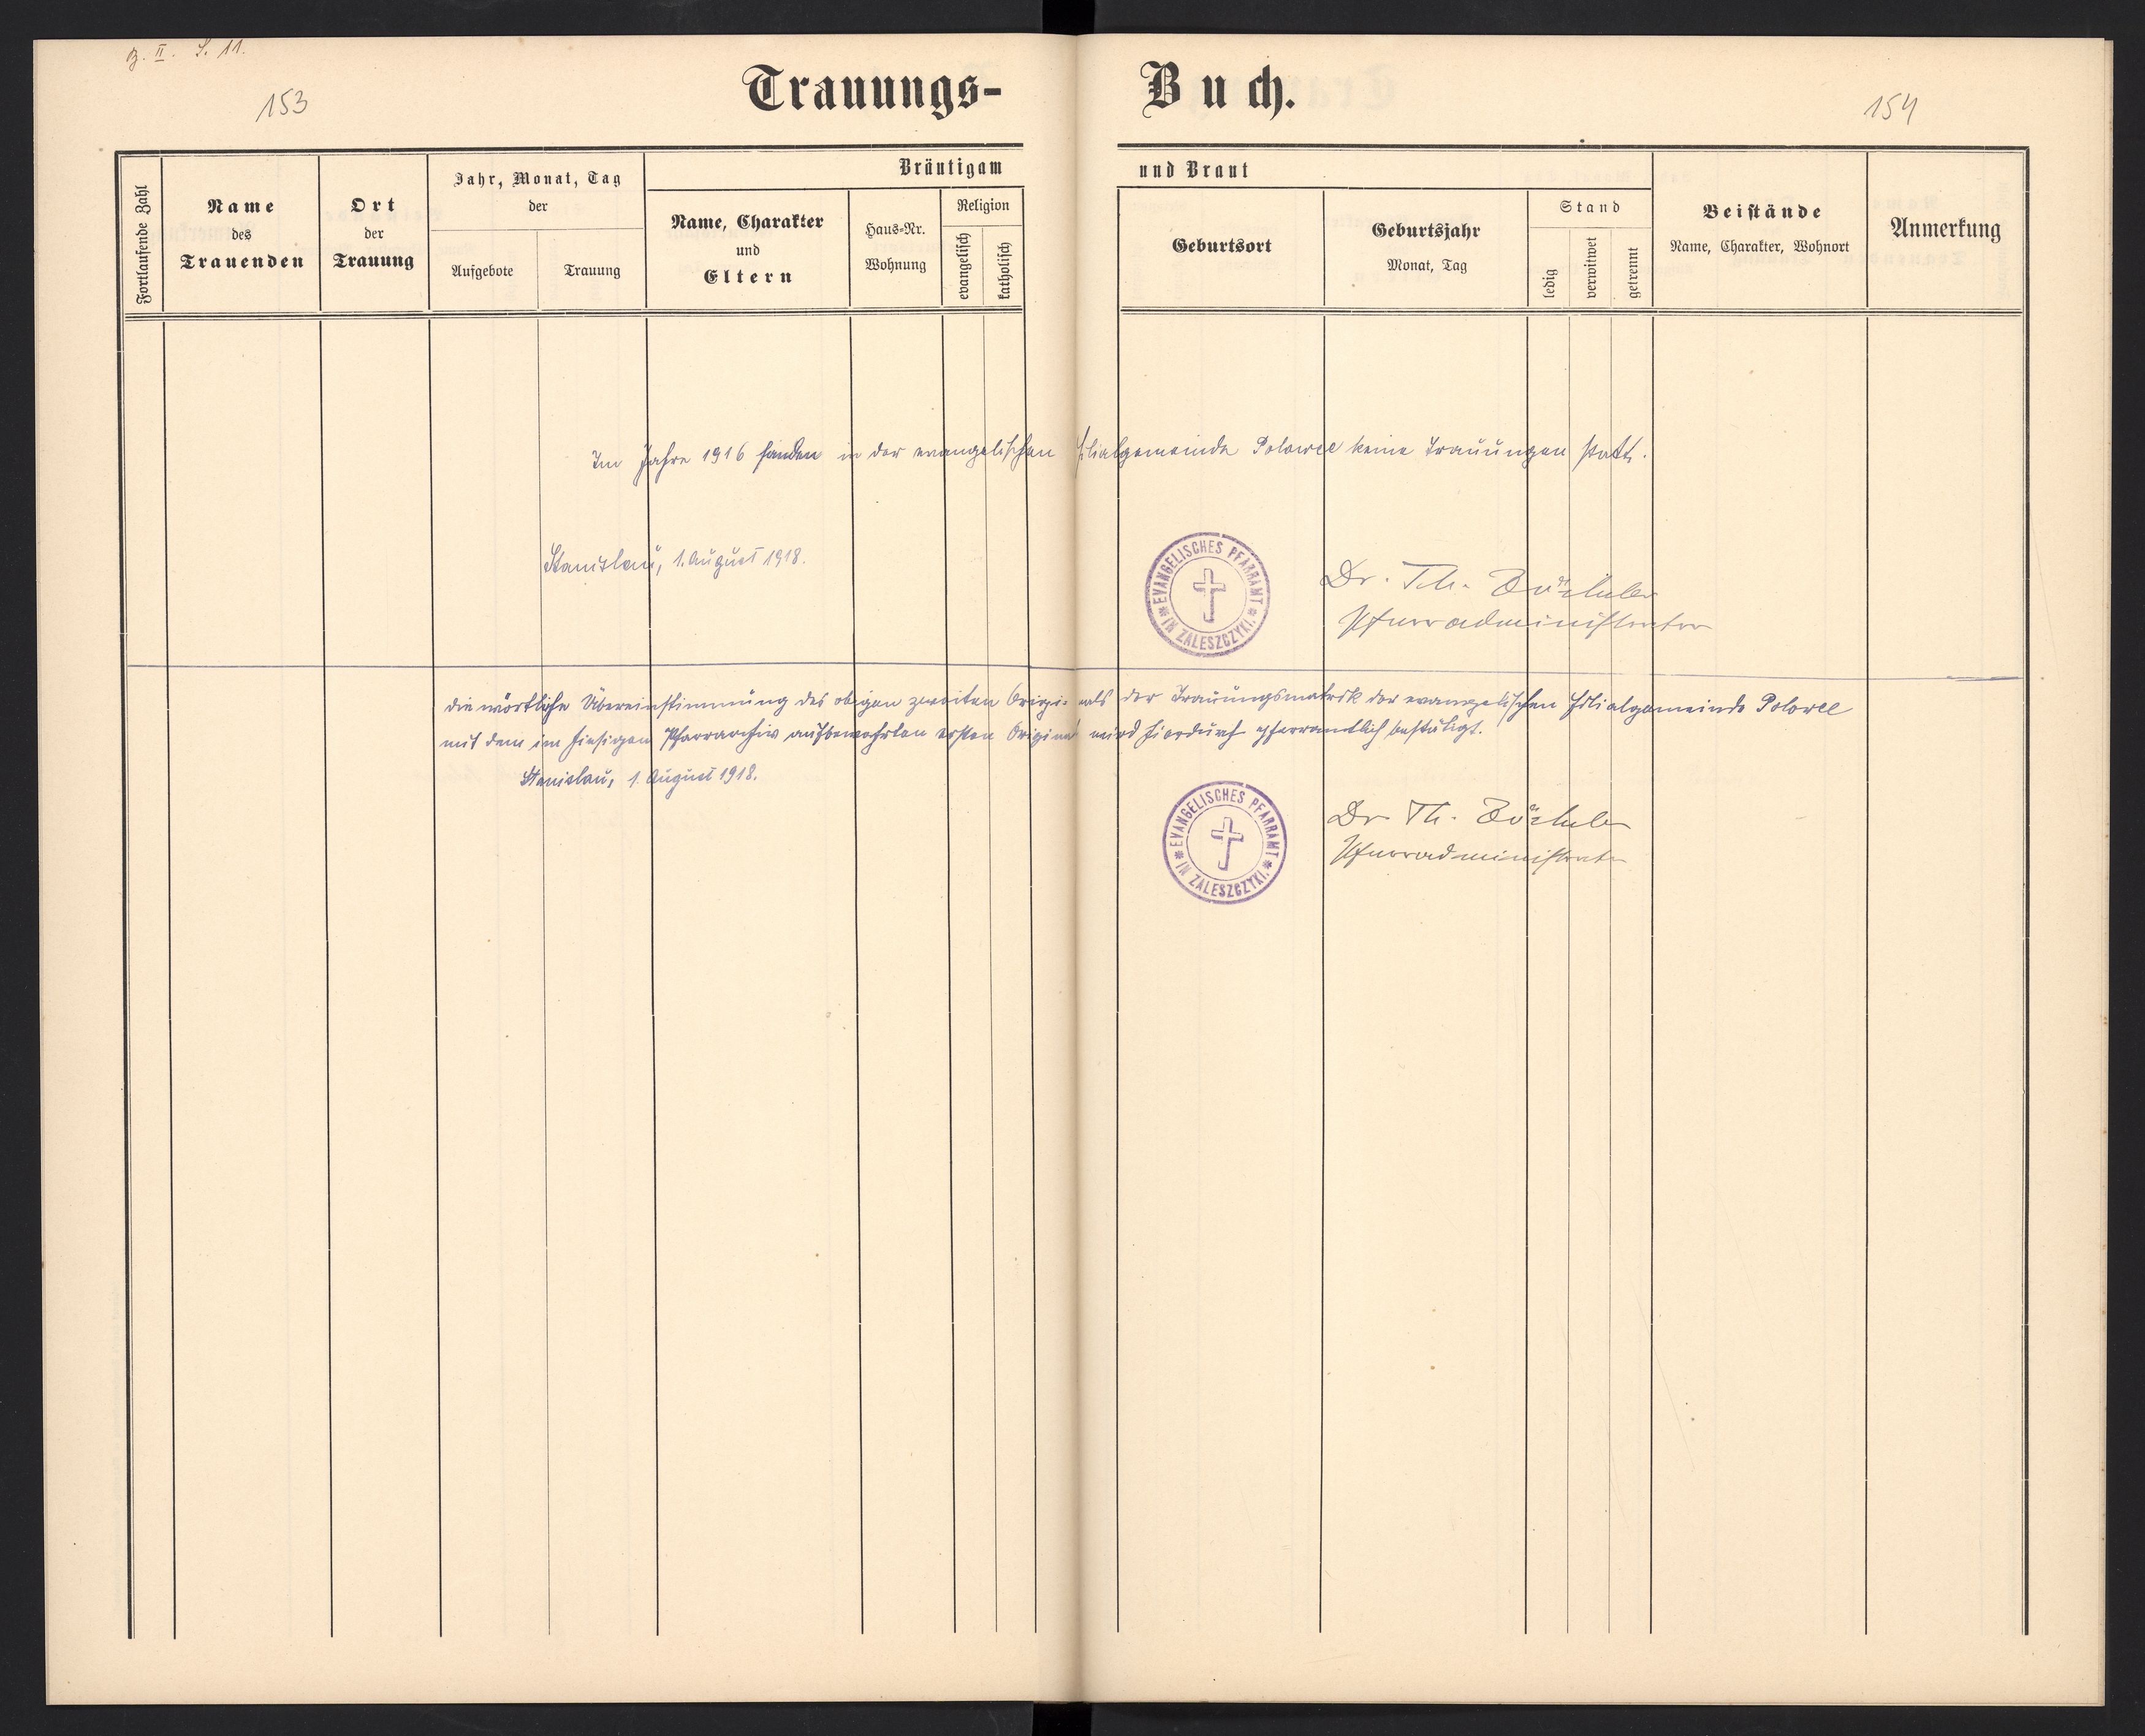 B. II. S. 11.
153
154
Trauungs-Buch.
Fortlaufende Zahl
Name
des
Trauenden
Ort
der
Trauung
Jahr, Monat, Tag
der
Aufgebote
Trauung
Bräutigam und Braut
Name, Charakter
und
Eltern
Haus-Nr.
Wohnung
Religion
evangelisch
katholisch
Geburtsort
Geburtsjahr
Monat, Tag
Stand
ledig
verwitwet
getrennt
Beistände
Name, Charakter, Wohnort
Anmerkung
Im Jahre 1916 fanden in der evangelischen Filialgemeinde Polowce keine Trauungen statt.
Stanislau, 1. August 1918.
EVANGELISCHES PFARRAMT
IN ZALESZCZYKI.
Dr. Th. Zöckler
Pfarradministrator
Die wörtliche Übereinstimmung des obigen zweiten Origi- nals der Trauungsmatrik der evangelischen Filialgemeinde Polowce
mit dem im hiesigen Pfarrarchiv aufbewahrten ersten Original wird hierdurch pfarramtlich bestätigt.
Stanislau, 1. August 1918.
EVANGELISCHES PFARRAMT
IN ZALESZCZYKI.
Dr Th. Zöckler
Pfarradministrator